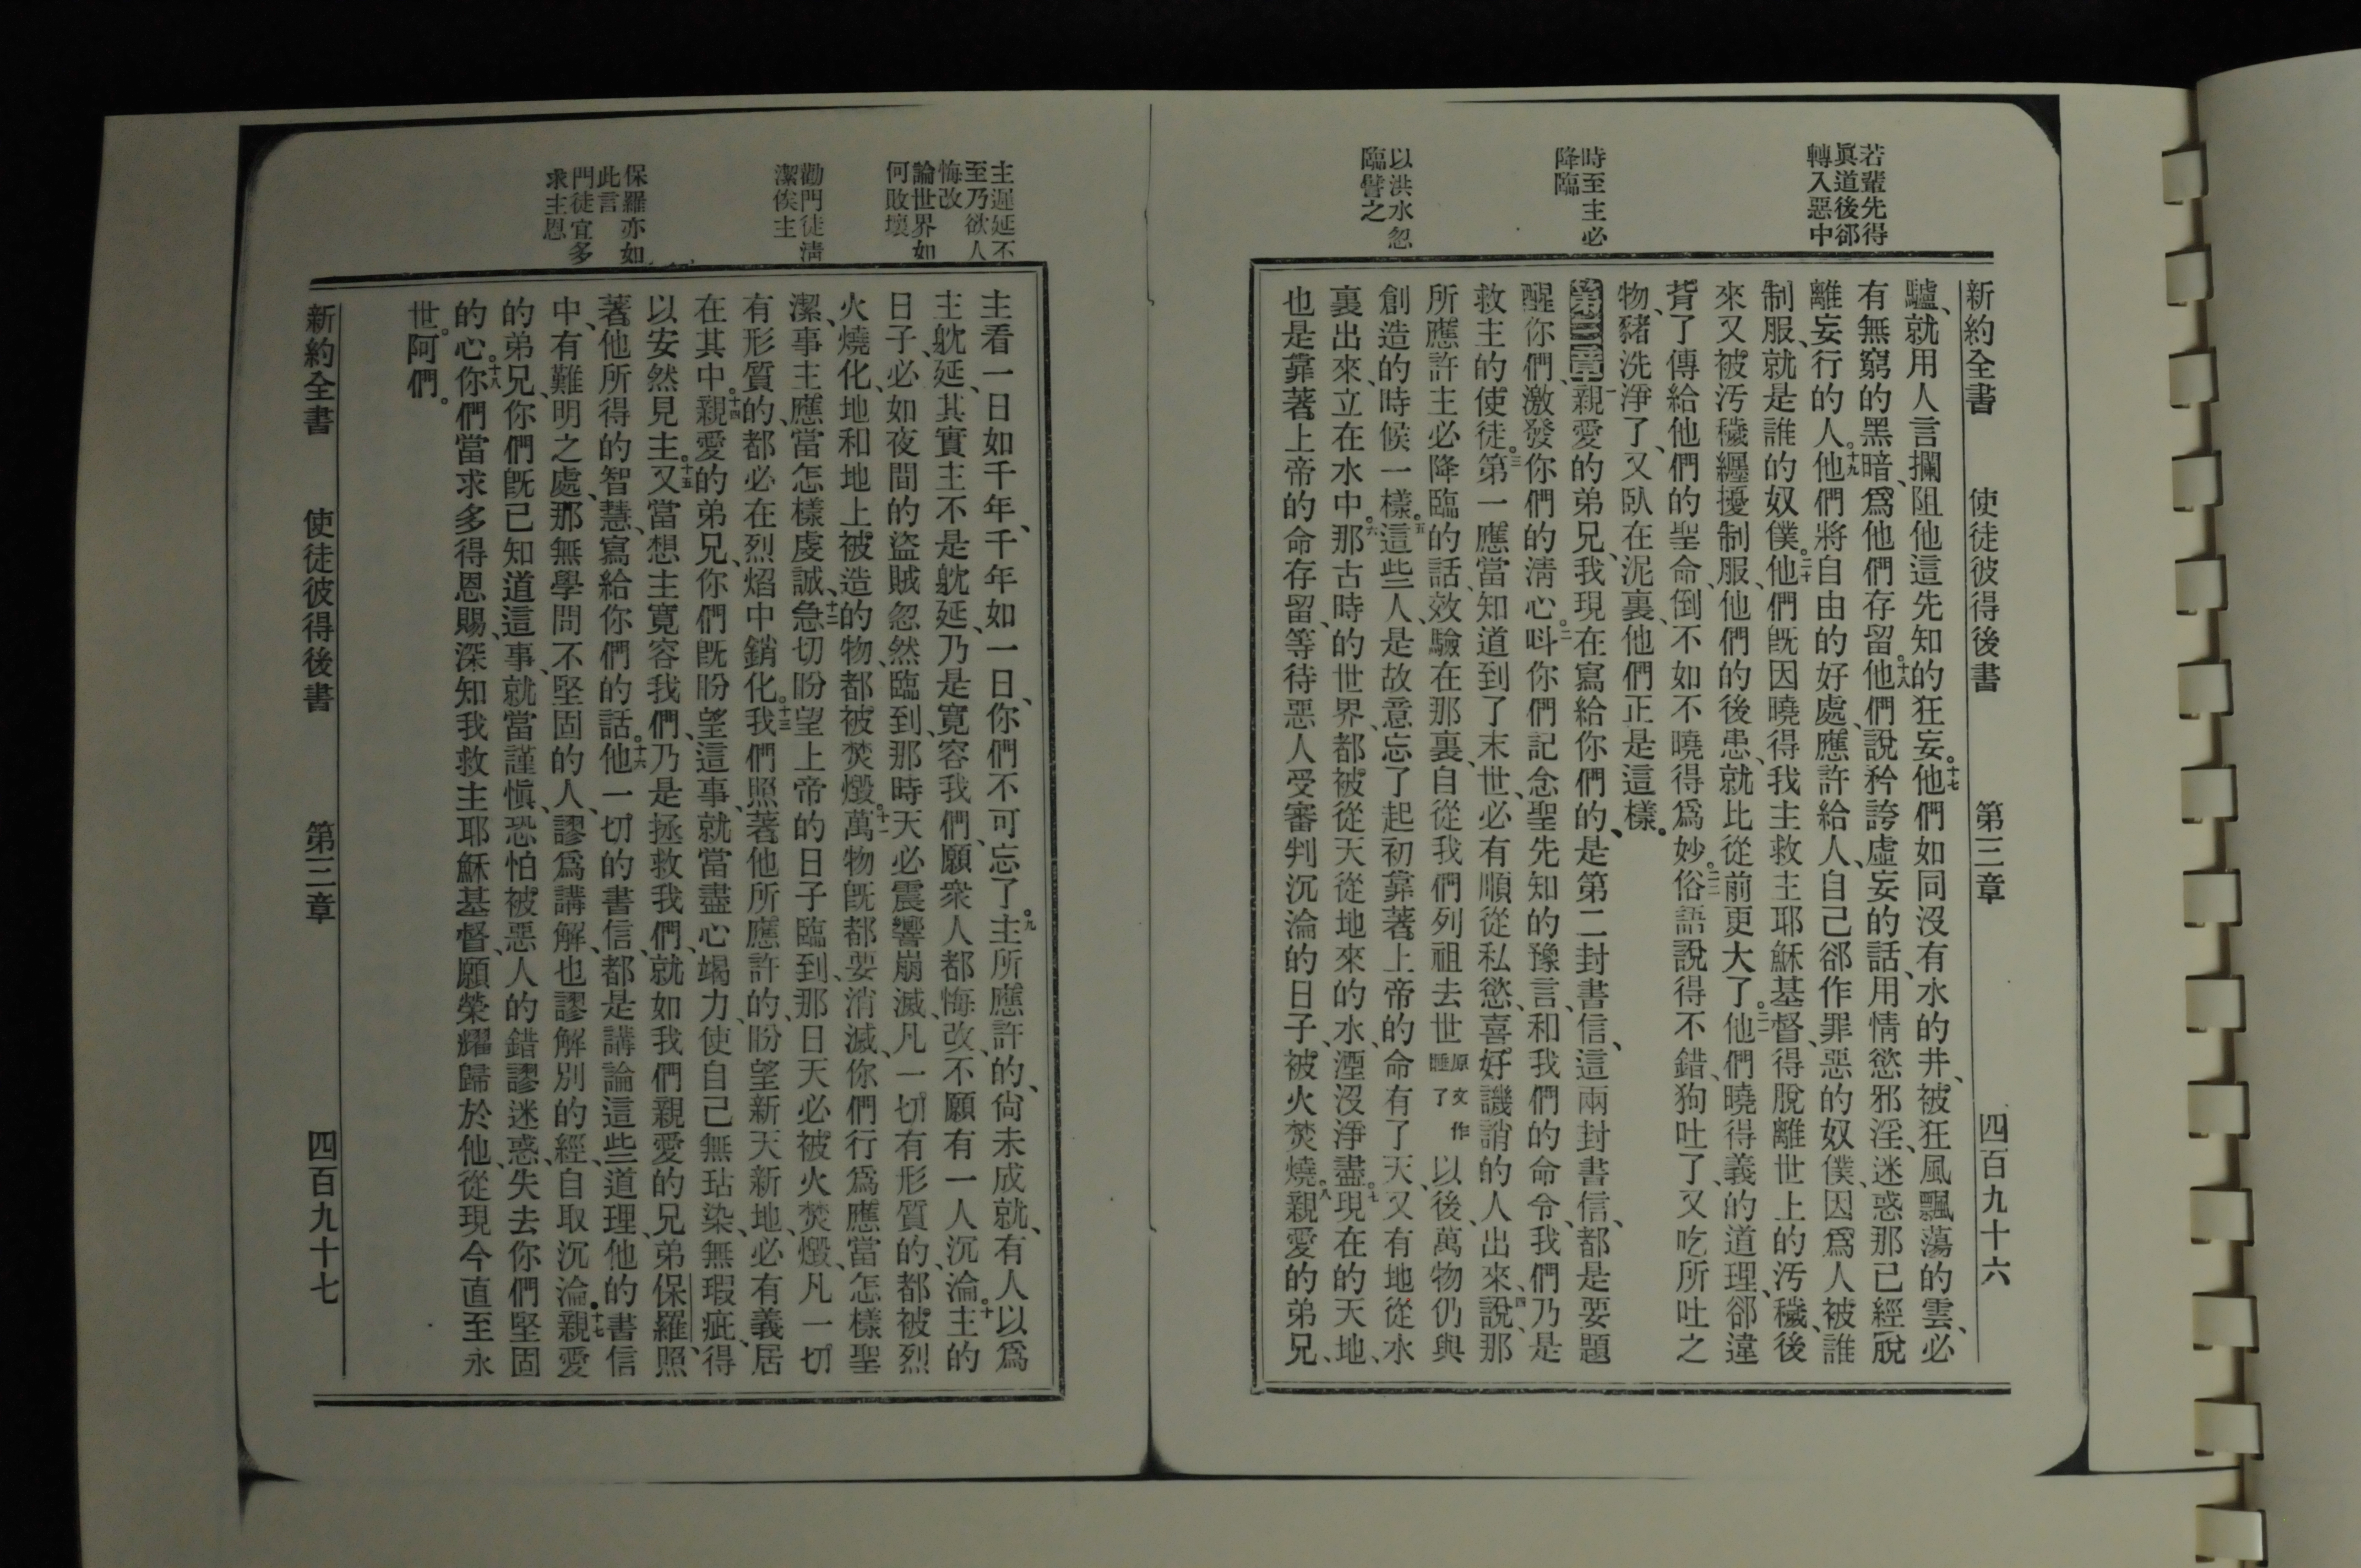 若輩先得
眞道後郤
轉入惡中
時至主必
降臨
以洪水忽
臨譬之
新約全書 使徒彼得後書 第三章 四百九十六
驢、就用人言攔阻他這先知的狂妄。十七他們如同沒有水的井、被狂風飄蕩的雲、必
有無窮的黑暗、爲他們存留。十八他們說矜誇虛妄的話、用情慾邪淫、迷惑那已經脫
離妄行的人。十九他們將自由的好處、應許給人、自己郤作罪惡的奴僕、因爲人被誰
制服、就是誰的奴僕。二十他們旣因曉得我主救主耶穌基督、得脫離世上的汚穢、後
來又被汚穢纏擾制服、他們的後患、就比從前更大了。二一他們曉得義的道理、郤違
背了傳給他們的聖命、倒不如不曉得爲妙。二二俗語說得不錯、狗吐了、又吃所吐之
物、豬洗淨了、又臥在泥裏、他們正是這樣。
第三章一親愛的弟兄、我現在寫給你們的、是第二封書信、這兩封書信、都是要題
醒你們、激發你們的淸心。二呌你們記念聖先知的豫言、和我們的命令、我們乃是
救主的使徒。三第一應當知道到了末世、必有順從私慾、喜好譏誚的人出來、四說、那
所應許主必降臨的話、效驗在那裏、自從我們列祖去世原文作睡了以後、萬物仍與
創造的時候一樣。五這些人、是故意忘了起初靠著上帝的命有了天、又有地從水
裏出來、立在水中。六那古時的世界、都被從天從地來的水、湮沒淨盡。七現在的天地、
也是靠著上帝的命存留、等待惡人受審判沉淪的日子、被火焚燒。八親愛的弟兄、
主遲延不
至乃欲人
悔改
論世界如
何敗壞
勸門徒淸
潔俟主
保羅亦如
此言
門徒宜多
求主恩
主看一日如千年、千年如一日、你們不可忘了。九主所應許的、尙未成就、有人以爲
主躭延、其實主不是躭延、乃是寬容我們、願衆人都悔改、不願有一人沉淪。十主的
日子、必如夜間的盜賊忽然臨到、那時天必震響崩滅、凡一切有形質的、都被烈
火燒化、地和地上被造的物、都被焚燬。十一萬物旣都要消滅、你們行爲應當怎樣聖
潔、事主應當怎樣虔誠、十二急切盼望上帝的日子臨到、那日天必被火焚燬、凡一切
有形質的、都必在烈焰中銷化。十三我們照著他所應許的、盼望新天新地、必有義居
在其中。十四親愛的弟兄、你們旣盼望這事、就當盡心竭力、使自己無玷染、無瑕疵、得
以安然見主。十五又當想主寬容我們、乃是拯救我們、就如我們親愛的兄弟保羅、照
著他所得的智慧、寫給你們的話。十六他一切的書信、都是講論這些道理、他的書信
中、有難明之處、那無學問不堅固的人、謬爲講解、也謬解別的經、自取沉淪。十七親愛
的弟兄、你們旣已知道這事、就當謹愼、恐怕被惡人的錯謬迷惑、失去你們堅固
的心。十八你們當求多得恩賜、深知我救主耶穌基督、願榮耀歸於他、從現今直至永
世。阿們。
新約全書 使徒彼得後書 第三章 四百九十七